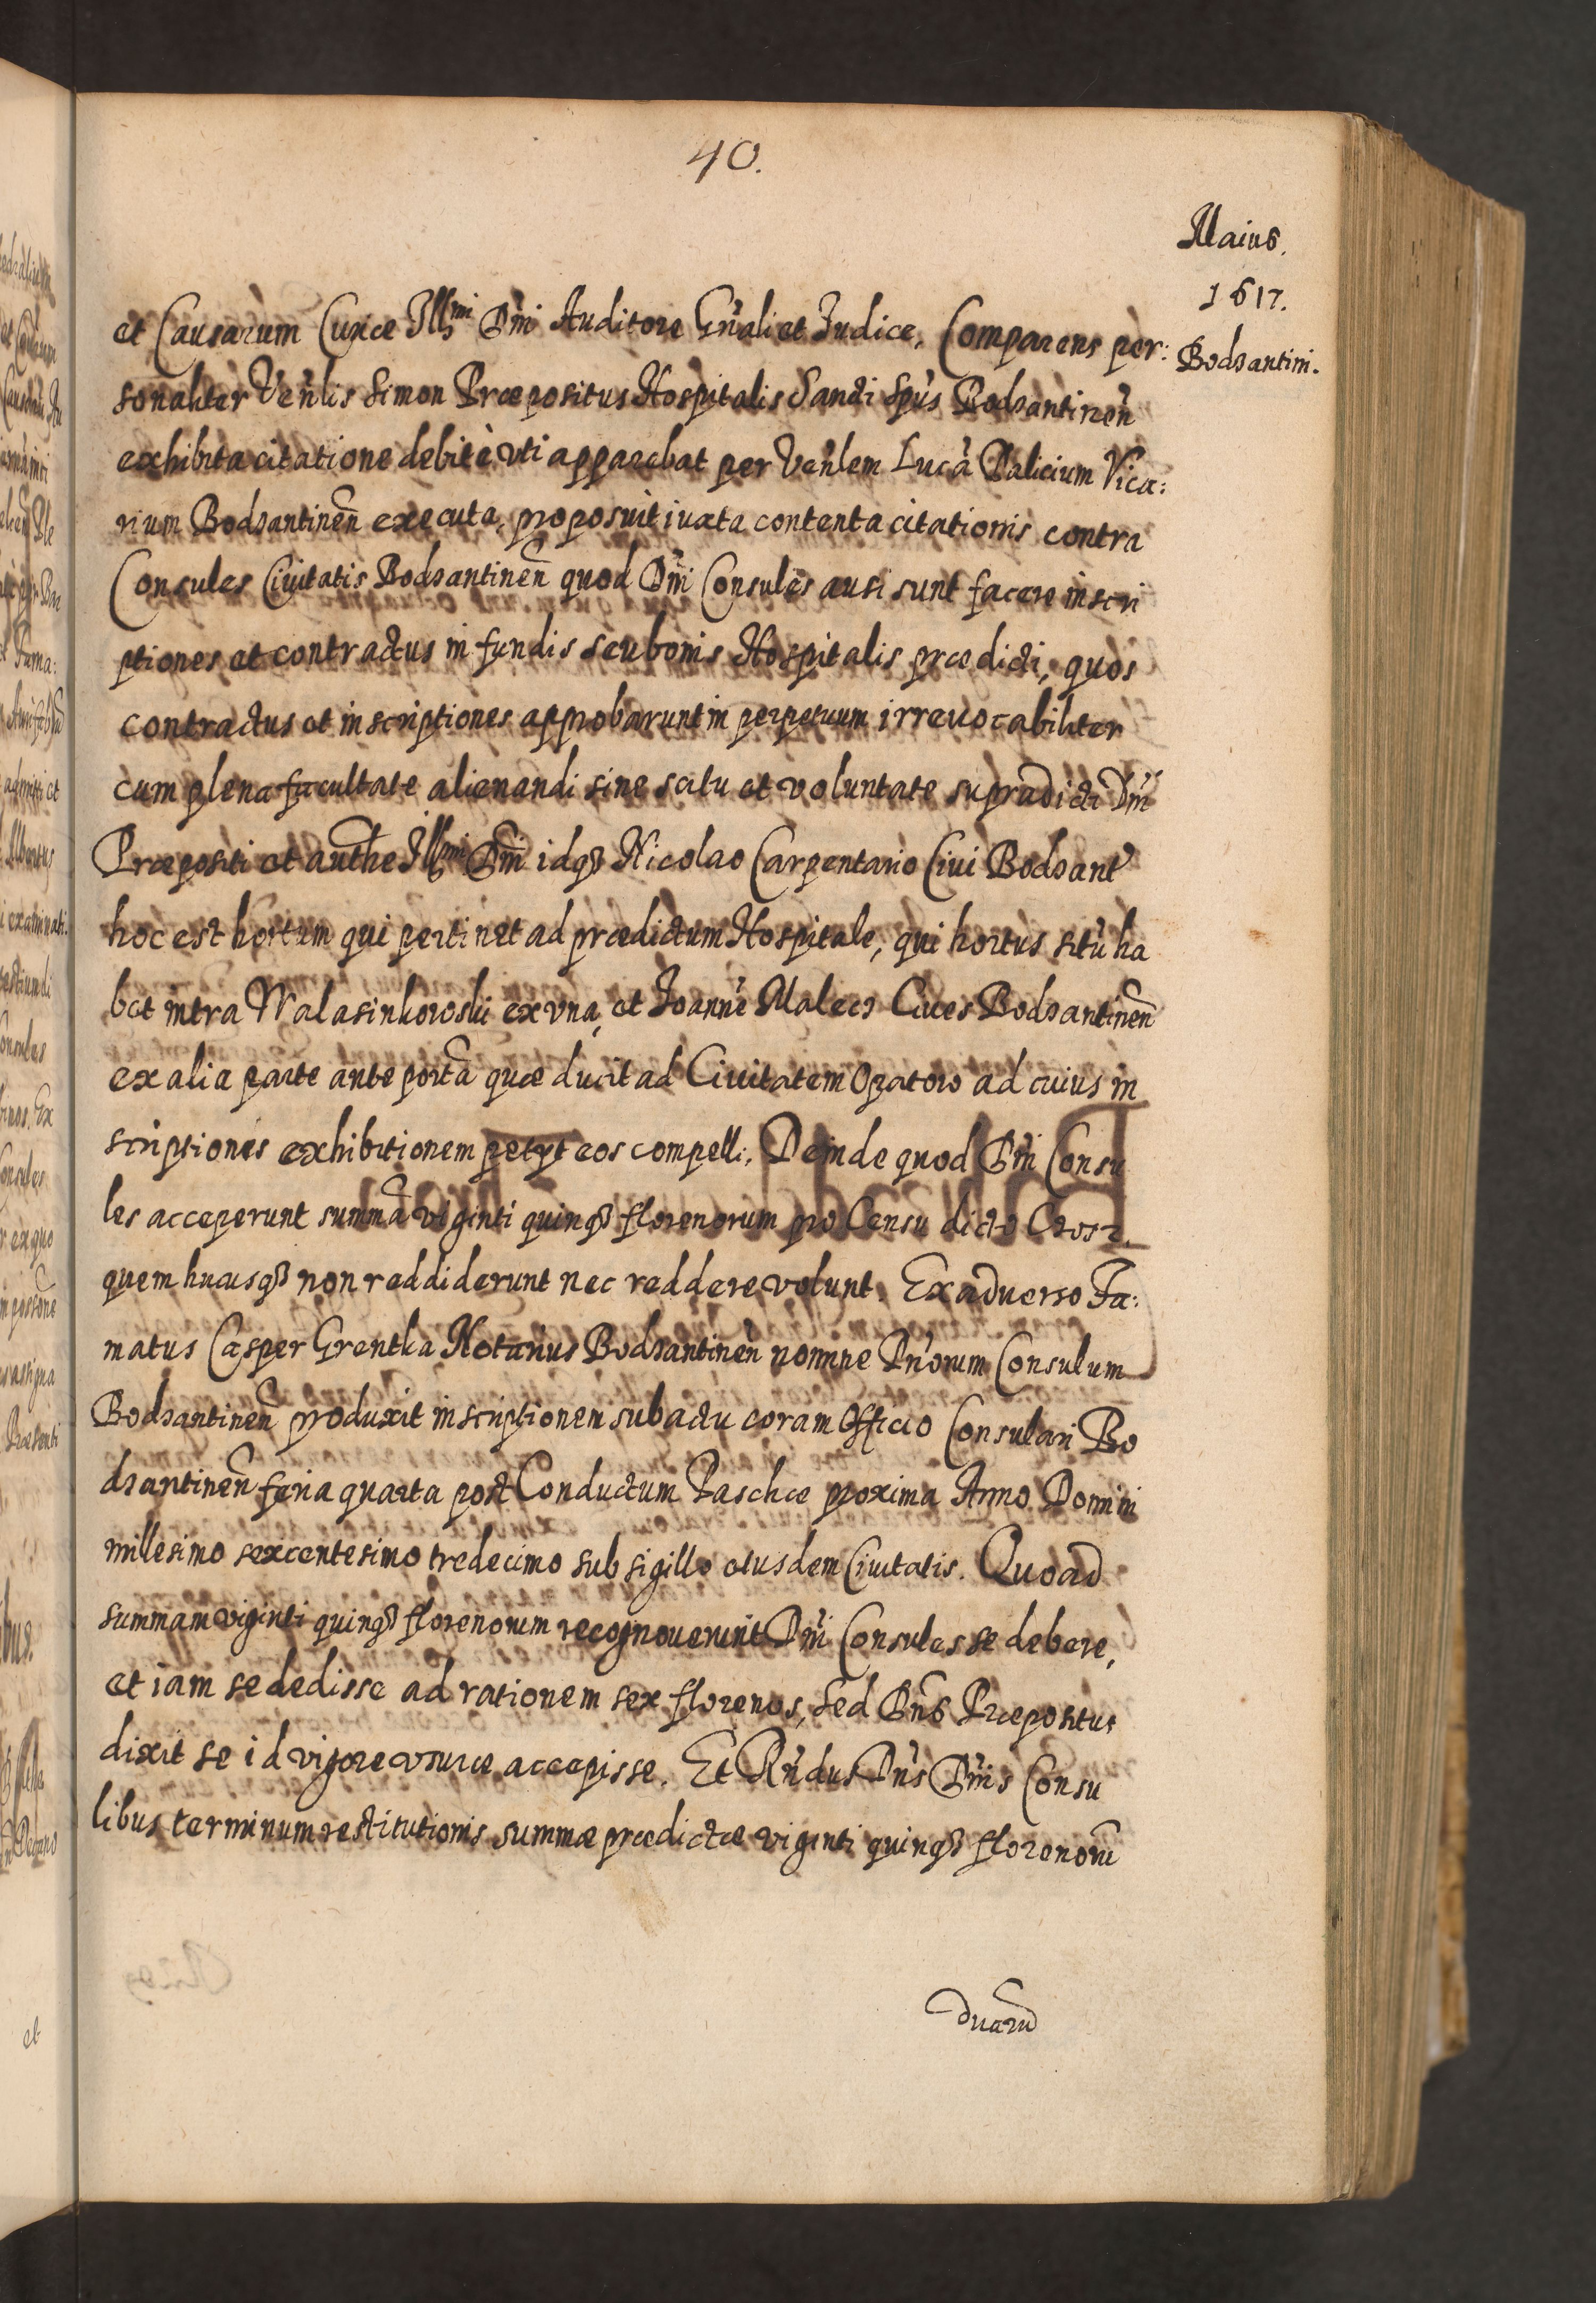 40.
Maius.
1617.
Bodzantini.
et Causarum Curiæ Illmi Dni Auditore Gnali et Iudice, Comparens per:
sonaliter Venlis Simon Præpositus Hospitalis Sancti Spus Bodzantinen
exhibita citatione debitè vti apparebat per Venlem Lucã Palicium Vica:
rium Bodzantinen executa, proposuit iuxta contenta citationis contra
Consules Ciuitatis Bodzantinen quod Dni Consules ausi sunt facere inscri
ptiones et contractus in fundis seu bonis Hospitalis prædicti, quos
contractus et inscriptiones approbarunt in perpetuum irreuocabiliter
cum plena facultate alienandi sine scitu et voluntate supradicti Dni
Præpositi et authe Illmi Dni idq3 Nicolao Carpentario Ciui Bodzant
hoc est hortum qui pertinet ad prædictum Hospitale, qui hortus sitũ ha
bet intra Walasinkowski ex vna, et Joannẽ Malecz Ciues Bodzantinen
ex alia parte ante portã quæ ducit ad Ciuitatem Opatow ad cuius in
scriptionis exhibitionem petyt eos compelli. Deinde quod Dni Consu
les acceperunt summã viginti quinq3 florenorum pro Censu dicto Czosz
quem hucusq3 non reddiderunt nec reddere volunt. Ex aduerso Fa:
matus Casper Grentka Notarius Bodzantinen nomine Dnorum Consulum
Bodzantinen produxit inscriptionem sub actu coram Officio Consulari Bo
dzantinen feria quarta post Conductum Paschæ proxima Anno Domini
millesimo sexcentesimo tredecimo sub sigillo eiusdem Ciuitatis. Quoad
summam viginti quinq3 florenorum recognouerunt Dni Consules se debere,
et iam se dedisse ad rationem sex florenos, sed Dns Præpositus
dixit se id vigore vsuræ accepisse. Et Rndus Dns Dnis Consu
libus terminum restitutionis summæ prædictæ viginti quinq3 florenorũ
duarũ